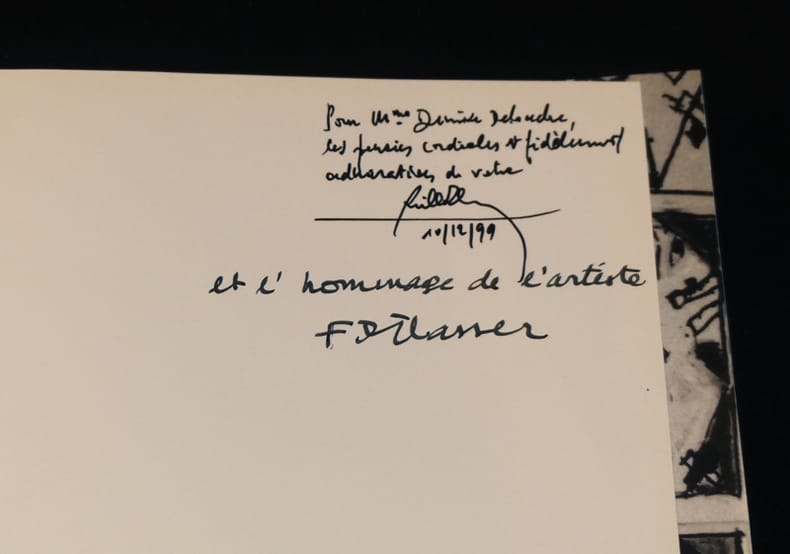 Pour Mme Denise Delouche,
les pensées cordiales et fidèlement
admiratives de votre
10/12/99
et l' hommage de l'artiste
F Dilasser